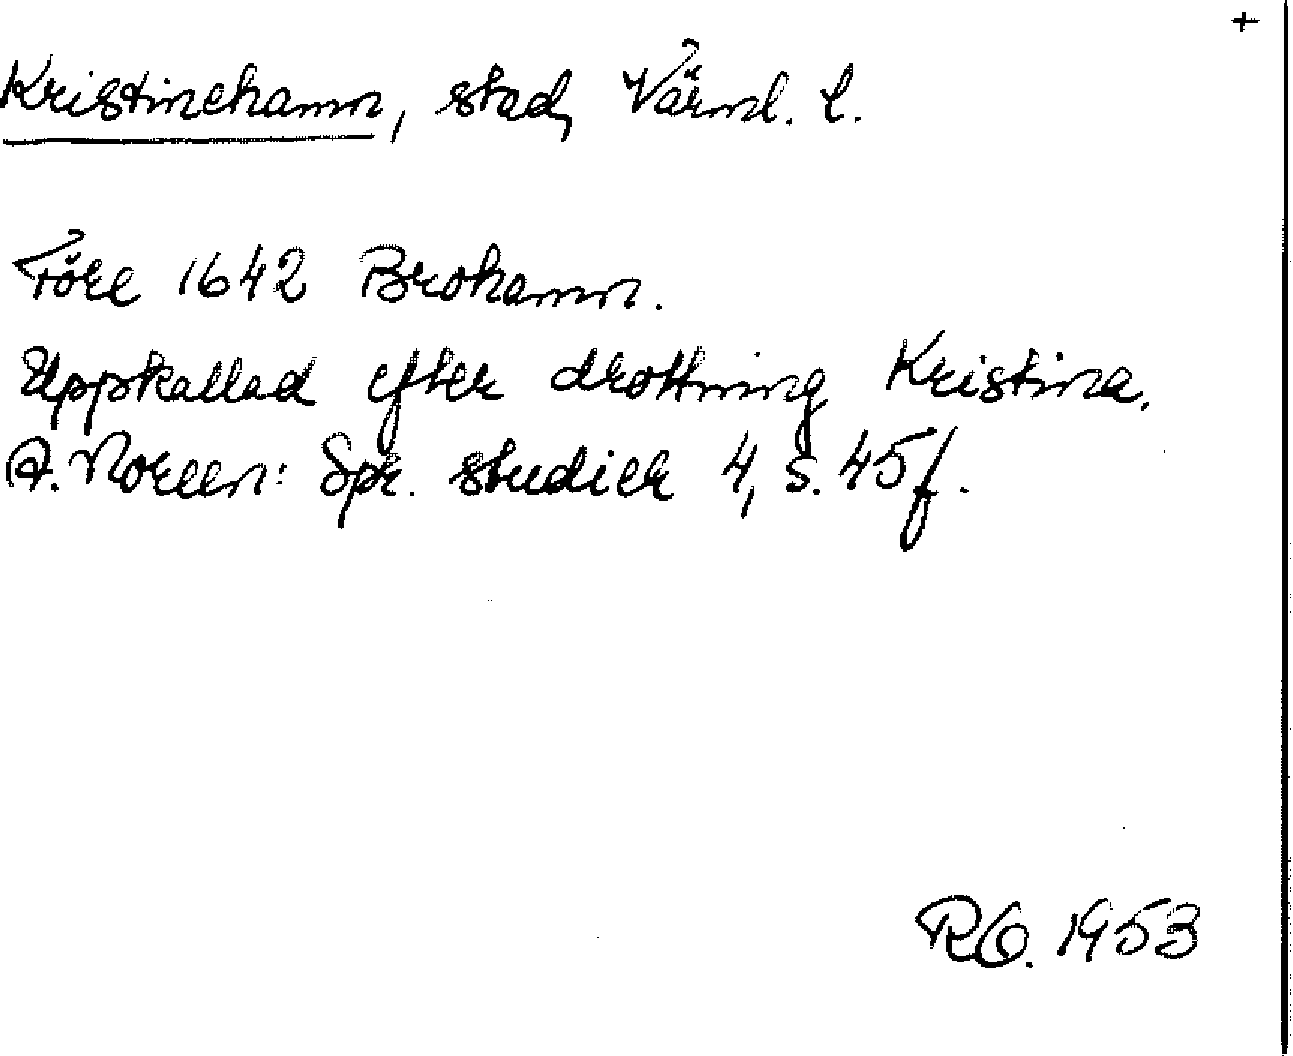 +
Kristinehamn, stad, Värml. l.
Före 1642 Brohamn.
Uppkallad efter drottning Kristina.
A. Noreen: Spr. studier 4, s. 45 f.
1953